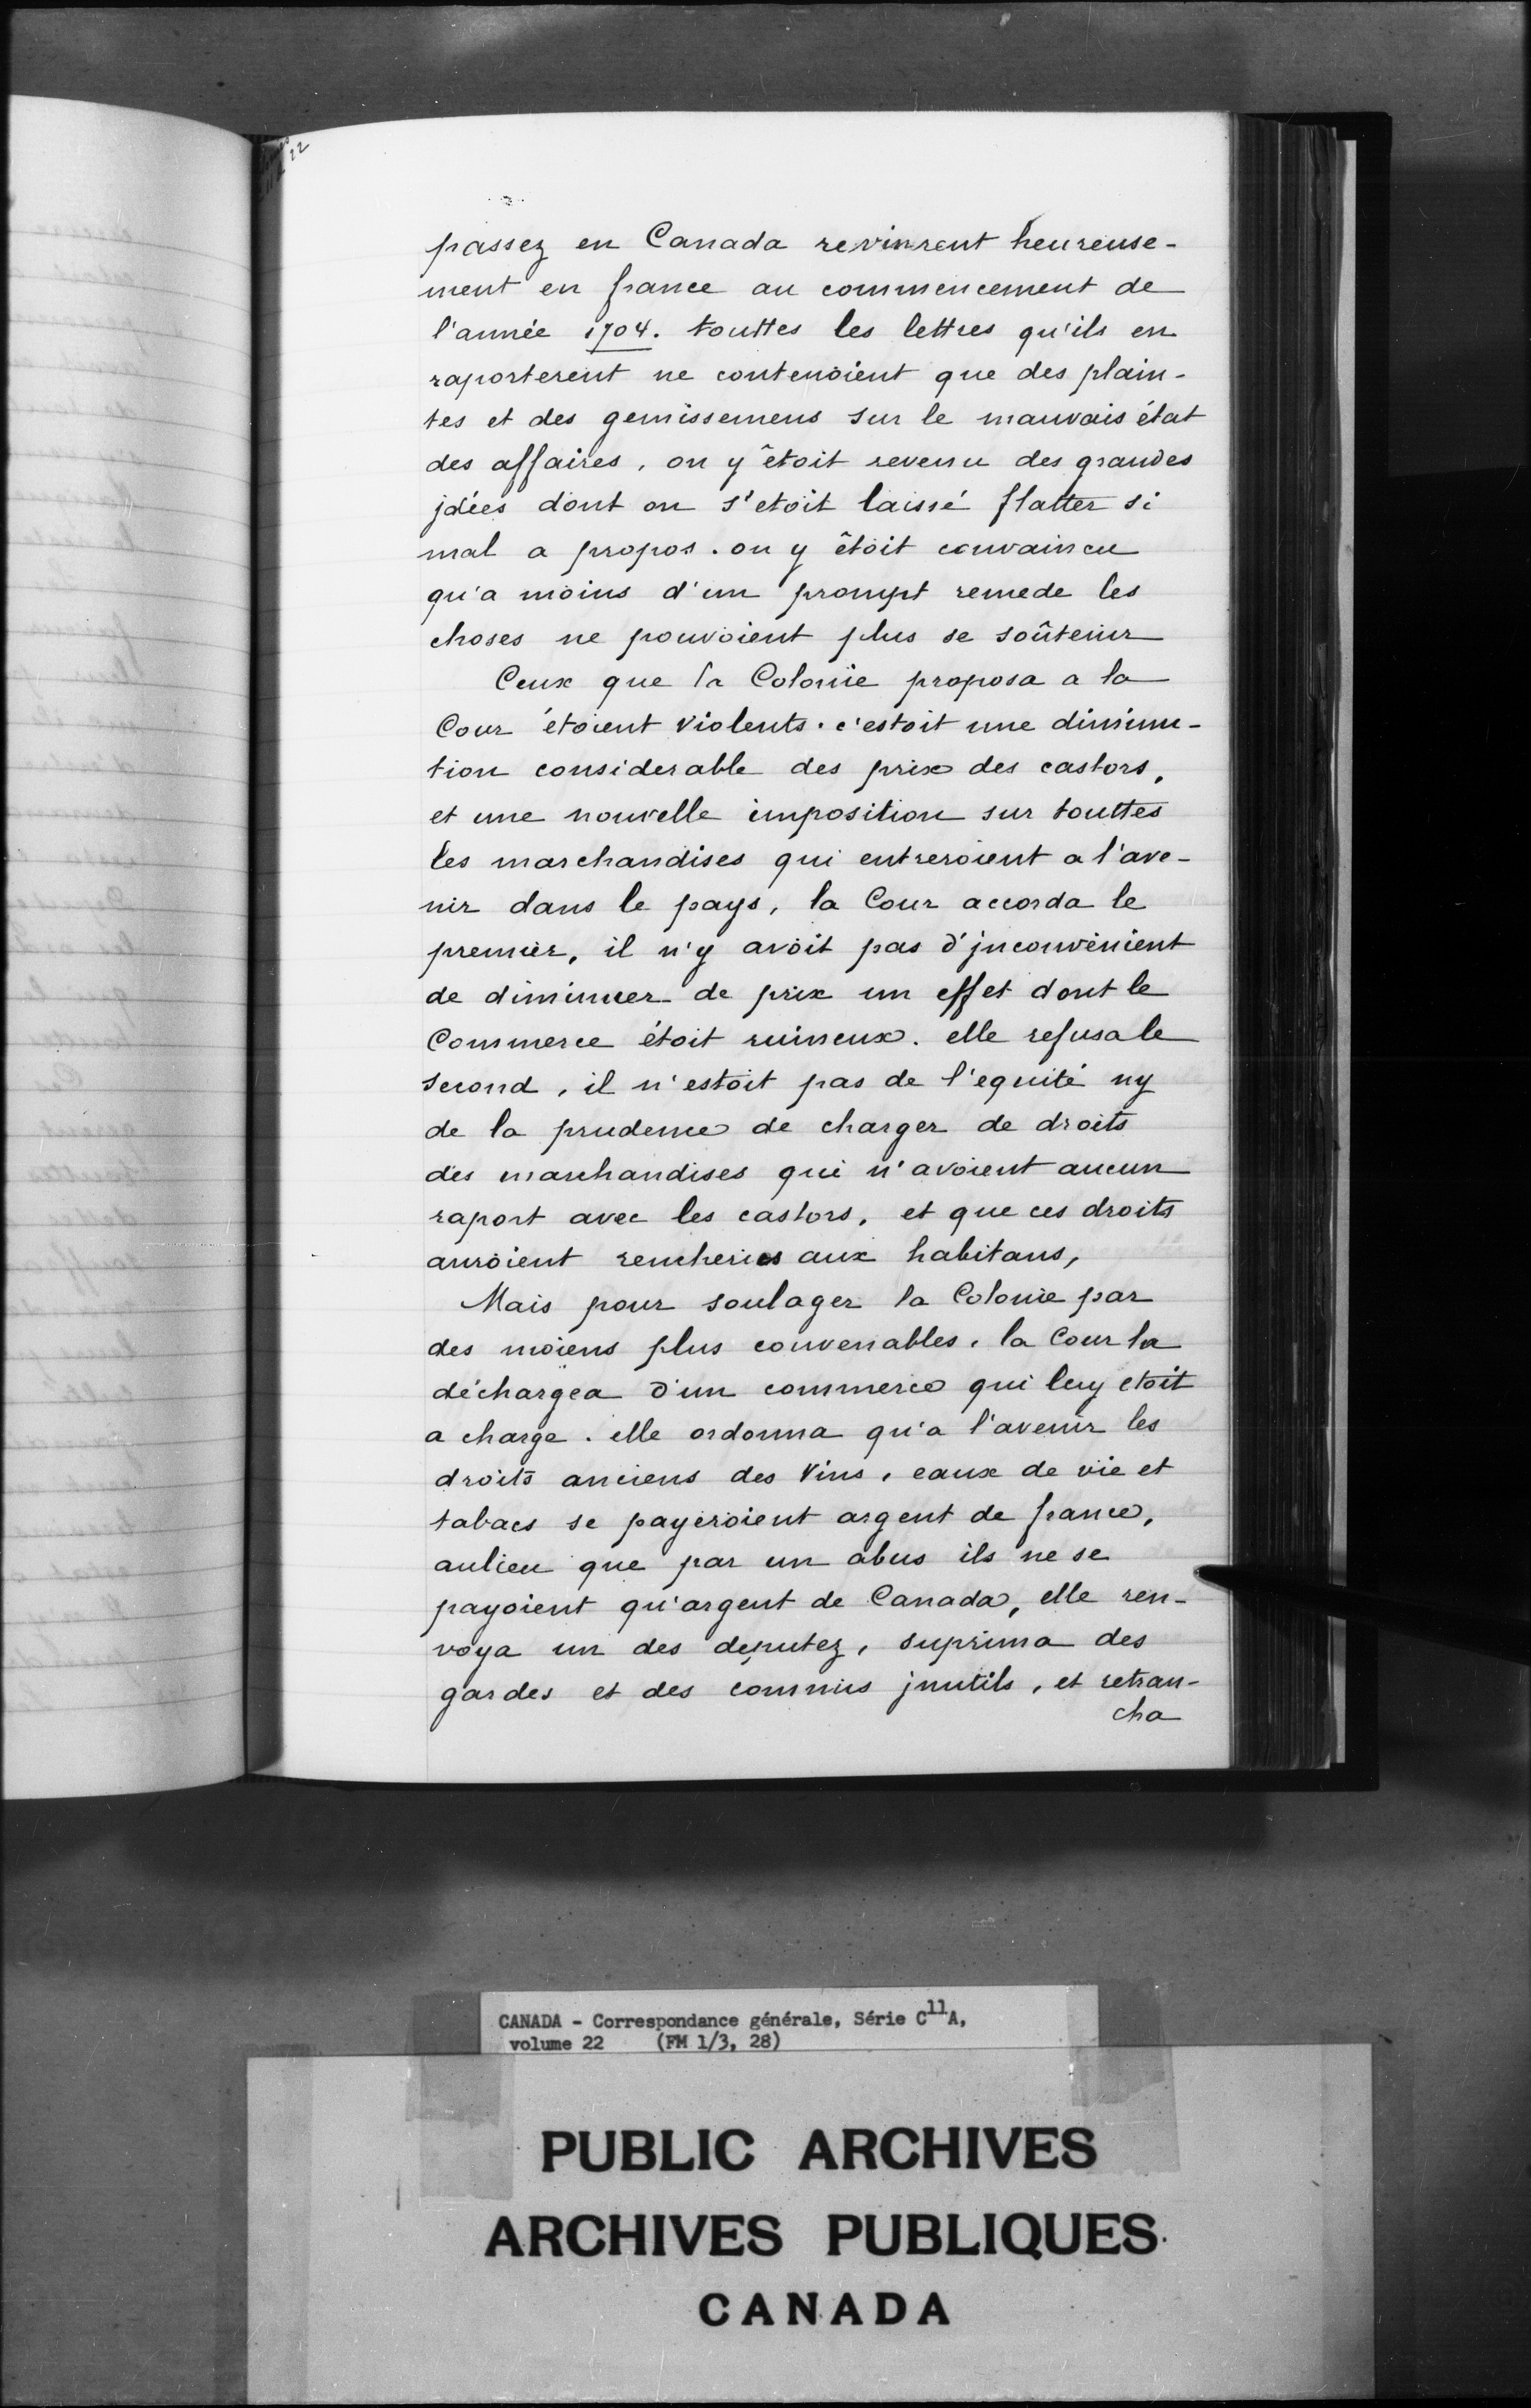 22
passez en Canada revinrent heureuse-
ment en france au commencement de
l'année 1704. touttes les lettres qu'ils en
raporterent ne contenoient que des plain-
tes et des gemissemens sur le mauvais état
des affaires, on y étoit revenu des grandes
jdées dont on s'etoit laissé flatter si
mal a propos. on y étoit convaincu
qu'a moins d'un prompt remede les
choses ne pouvoient plus se soûtenir
Ceux que la Colonie proposa a la
Cour étoient violents. c'estoit une diminu-
tion considerable des prix des castors,
et une nouvelle imposition sur touttes
les marchandises qui entreroient a l'ave-
nir dans le pays, la Cour accorda le
premier, il n'y avoit pas d'jnconvénient
de diminuer de prix un effet dont le
Commerce étoit ruineux. elle refusa le
second, il n'estoit pas de l'equité ny
de la prudence de charger de droits
des marchandises qui n'avoient aucun
raport avec les castors, et que ces droits
auroient rencheries aux habitans,
Mais pour soulager la Colonie par
des moiens plus convenables, la Cour la
déchargea d'un commerce qui luy etoit
a charge. elle ordonna qu'a l'avenir les
droits anciens des Vins, eaux de vie et
tabacs se payeroient argent de france,
aulieu que par un abus ils ne se
payoient qu'argent de Canada, elle ren-
voya un des deputez, suprima des
gardes et des commis jnutils, et retran-
cha
CANADA - Correspondance générale, Série C11A,
volume 22 (FM 1/3, 28)
PUBLIC ARCHIVES
ARCHIVES PUBLIQUES
CANADA